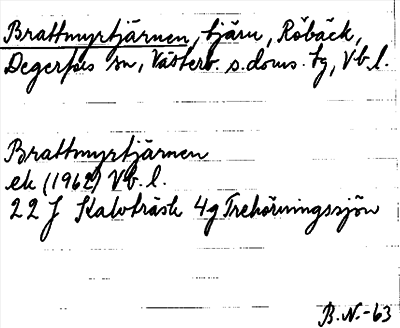 Brattmyrtjärnen, tjärn, Röbäck,
Degerfors sn, Västerb. s. doms. tg, Vb. l.
Brattmyrtjärnen
ek (1962) Vb. l.
22 J Kalvträsk 4g Trehörningssjön
B.N.-63